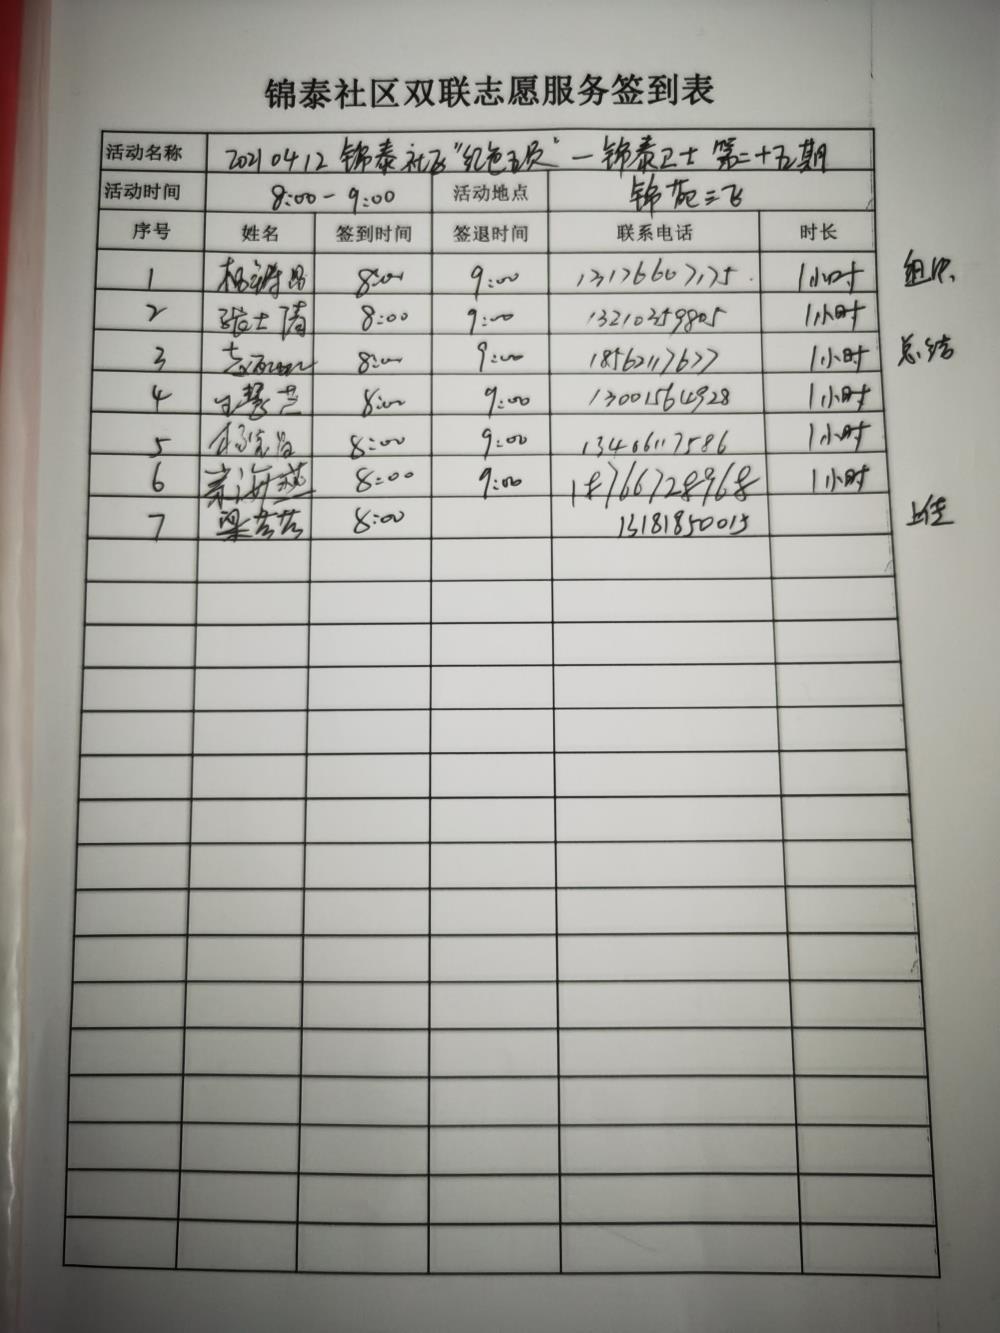 锦泰社区双联志愿服务签到表
活动名称 20210412 锦泰社区“红色五员”—锦泰卫士 第二十五期
活动时间 8:00-9:00 活动地点 锦苑三区
序号 姓名 签到时间 签退时间 联系电话 时长
1 8:00 9:00 13176607175 1小时 组织
2 张士清 8:00 9:00 13210359805 1小时
3 8:00 9:00 18562117677 1小时 总结
4 王慧兰 8:00 9:00 13001564928 1小时
5 8:00 9:00 13406117586 1小时
6 宗海燕 8:00 9:00 18766728968 1小时
7 梁芸芸 8:00 13181850015 上传